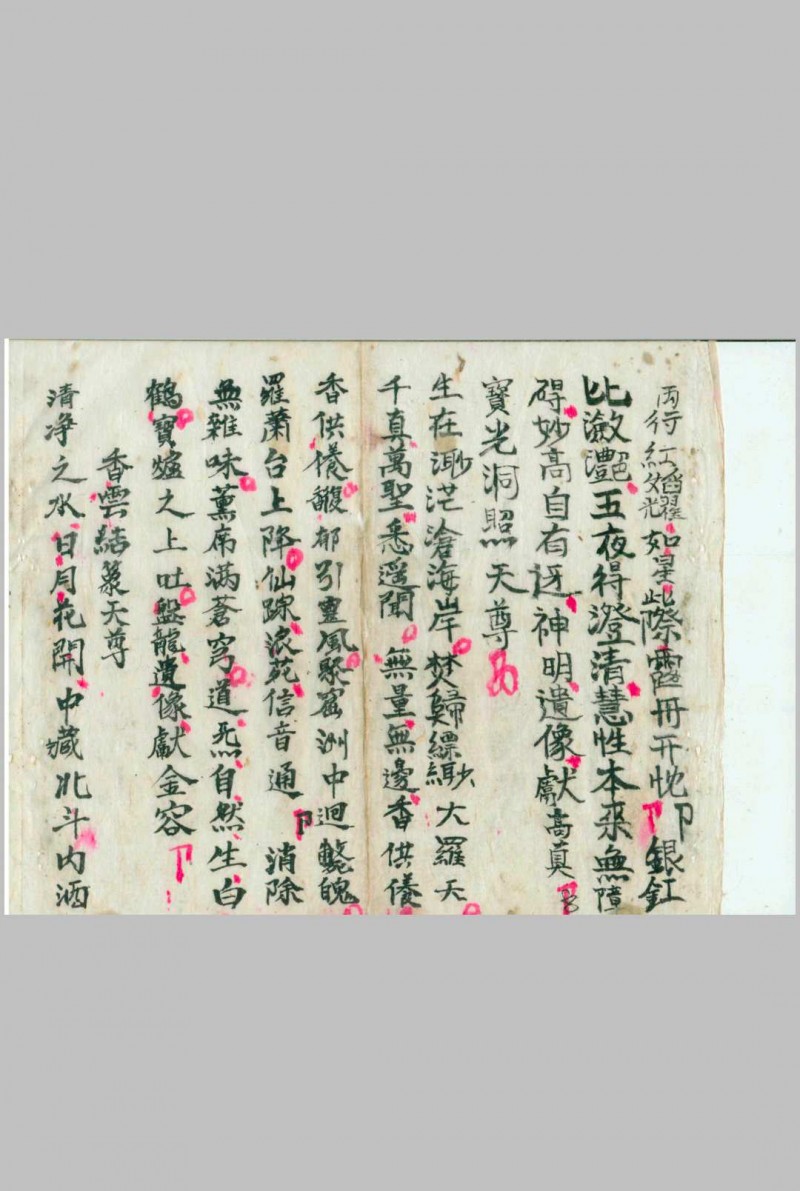 丙行紅焰耀父光如星此際霞冊开忱卩銀釭
比瀲灔五夜得澄清慧性本来無障
碍妙高自有迓神明遺像献高真
寶光洞照天尊
生在渺茫滄海岸焚歸縹緲大羅天
千真萬聖悉遥聞 無量無邊香供養
香供養馥郁引靈風聚窟洲中迴魄
羅蕭台上降仙踪浪苑信音通卩 消除
無雜味薫席滿蒼穹道炁自然生白
鶴寶爐之上吐盤龍遺像獻金容
香雲結篆天尊
清净之水日月花開中藏北斗内酒